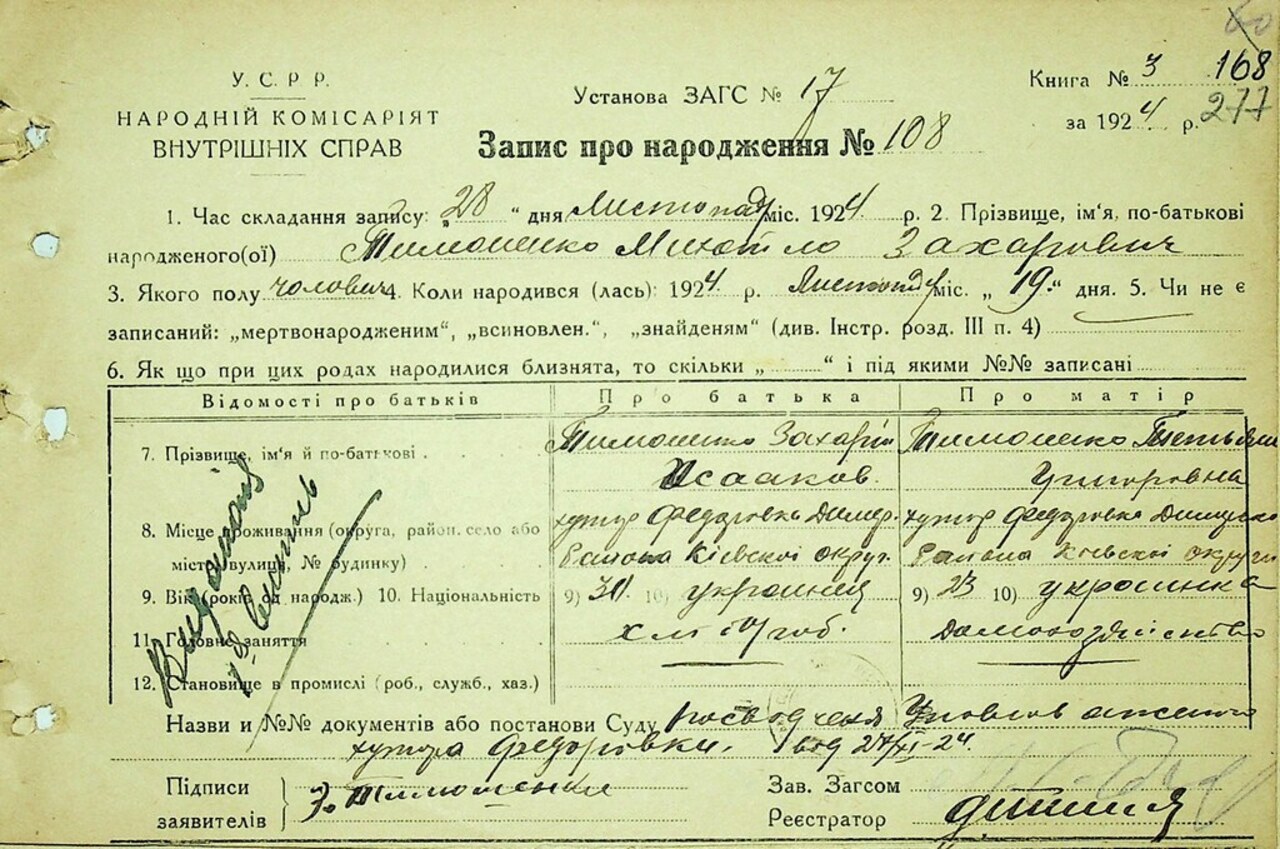 У. С. Р. Р.
НАРОДНІЙ КОМІСАРІЯТ
ВНУТРІШНІХ СПРАВ
Установа ЗАГС № 17
Запис про народження № 108
Книга № 3 168
за 1924 р. 277
1. Час складання запису: „28“ дня Листопад міс. 1924 р. 2. Прізвище, ім'я, по-батькові
народженого(ої) Тимошенко Михайло Захарович
3. Якого полу чолович 4. Коли народився (лась): 1924 р. Листопад міс. „19“ дня. 5. Чи не є
записаний: „мертвонародженим“, „всиновлен.“, „знайденям“ (див. Інстр. розд. III п. 4)
6. Як що при цих родах народилися близнята, то скільки „ “ і під якими №№ записані
Відомості про батьків Про батька Про матір
7. Прізвище, ім'я й по-батькові Тимошенко Захарій Тимошенко
Исааков. Григоровна
8. Місце проживання (округа, район, село або хутор Федоровка Димер. хутор Федоровка
місто, вулиця, № будинку) Района Кіевскоі округ. Района Кіевскоі округи
9. Вік (років од народж.) 10. Національність 9) 31 10) украинец 9) 23 10) украинка
11. Головне заняття
12. Становище в промислі (роб., служб., хаз.)
Назви и №№ документів або постанови Суду
хутора Федоровки. від 27/XI-24.
Підписи
заявителів З. Тимошенко
Зав. Загсом
Реєстратор